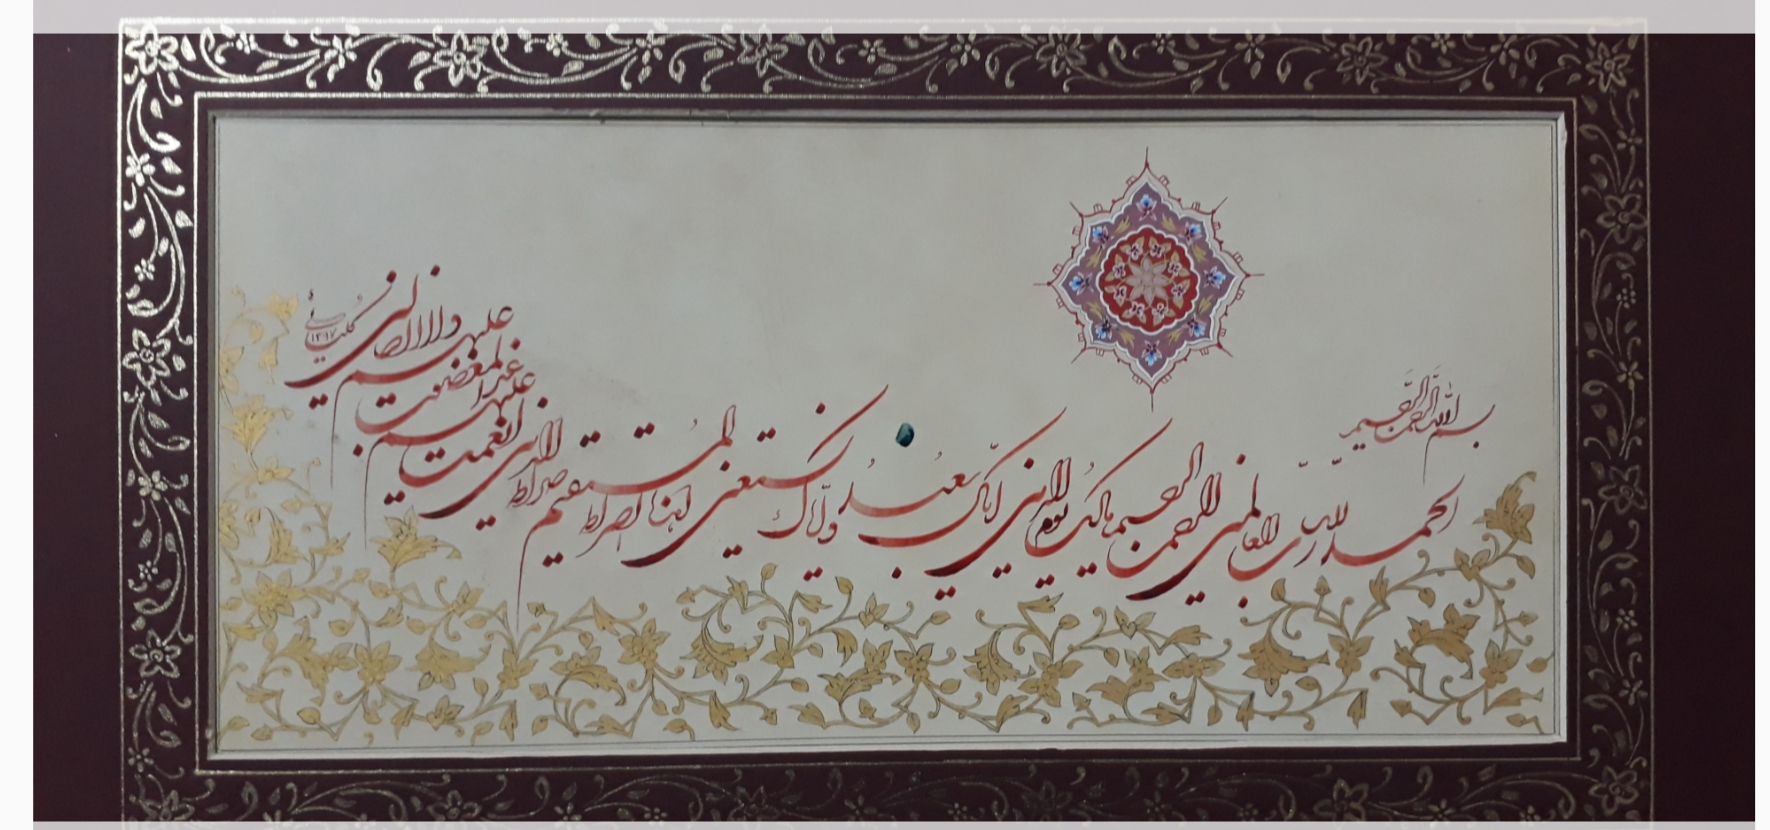 بسم الله الرحمن الرحیم
الحمد لله رب العالمین الرحمن الرحیم مالک یوم الدین ایاک نعبد و ایاک نستعین اهدنا الصراط المستقیم صراط الذین انعمت علیهم غیر المغضوب علیهم ولا الضالین
۱۳۹۷